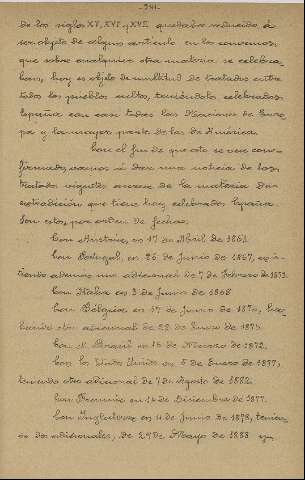 -341-
de los siglos XV, XVI y XVII quedaba reducido á
ser objeto de algun artículo en los convenios,
que sobre cualquiera otra materia se celebra-
ban, hoy es objeto de multitud de tratados entre
todos los pueblos cultos, teniéndolos celebrados
España con casi todas las Naciones de Euro-
pa y la mayor parte de las de América.
Con el fin de que esto se vea con-
firmado, vamos á dar una noticia de los
tratados vigentes acerca de la materia de
extradición que tiene hoy celebrados España.
Son estos, por orden de fechas.
Con Austria, en 17 de Abril de 1861.
Con Portugal, en 25 de Junio de 1867, exis-
tiendo además uno adicional de 7 de Febrero de 1873.
Con Italia en 3 de Junio de 1868
Con Bélgica en 17 de Junio de 1870, ha-
biendo otro adicional de 28 de Enero de 1875.
Con el Brasil en 16 de Marzo de 1872.
Con los Estados Unidos en 5 de Enero de 1877,
teniendo otro adicional de 7 de Agosto de 1882.
Con Francia en 14 de Diciembre de 1877.
Con Inglaterra en 4 de Junio de 1878, tenien-
do dos adicionales, de 29 de Mayo de 1888 y